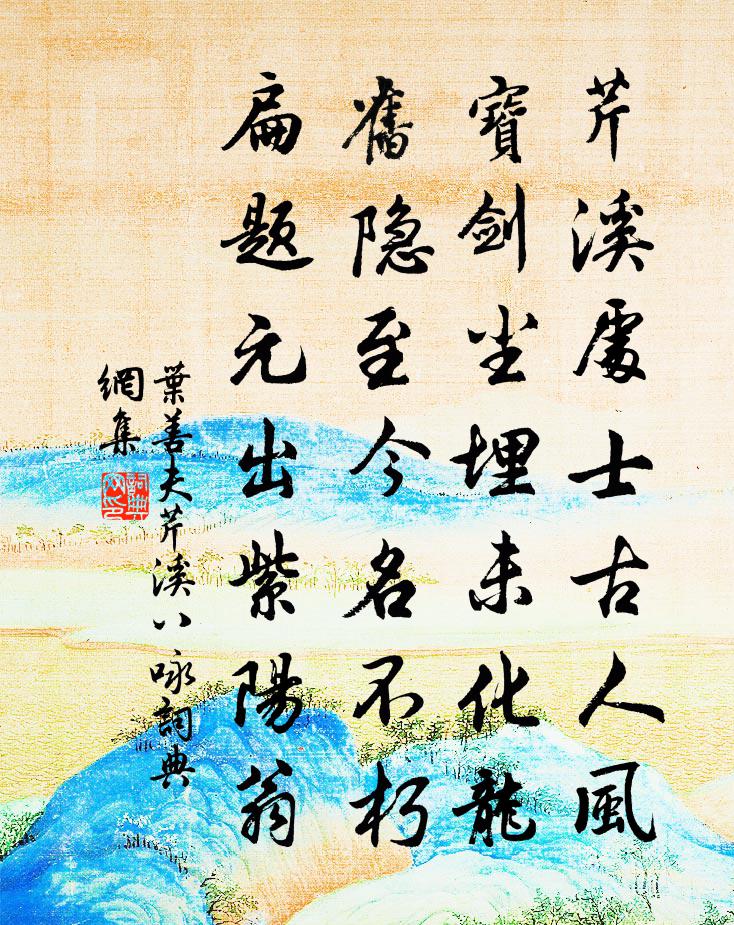 芹溪處士古人風
寶劍尘埋未化龍
舊隐至今名不朽
扁题元出紫陽翁
葉善夫芹溪八咏詞典
網集
詞典